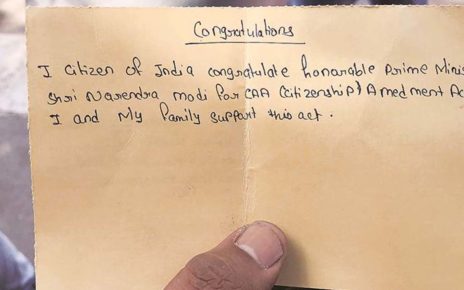 Congratulations
I Citizen of India congratulate honarable Prime Minis
Shri Narendra modi for CAA (Citizenship) Amedment Ac
I and My family support this act.